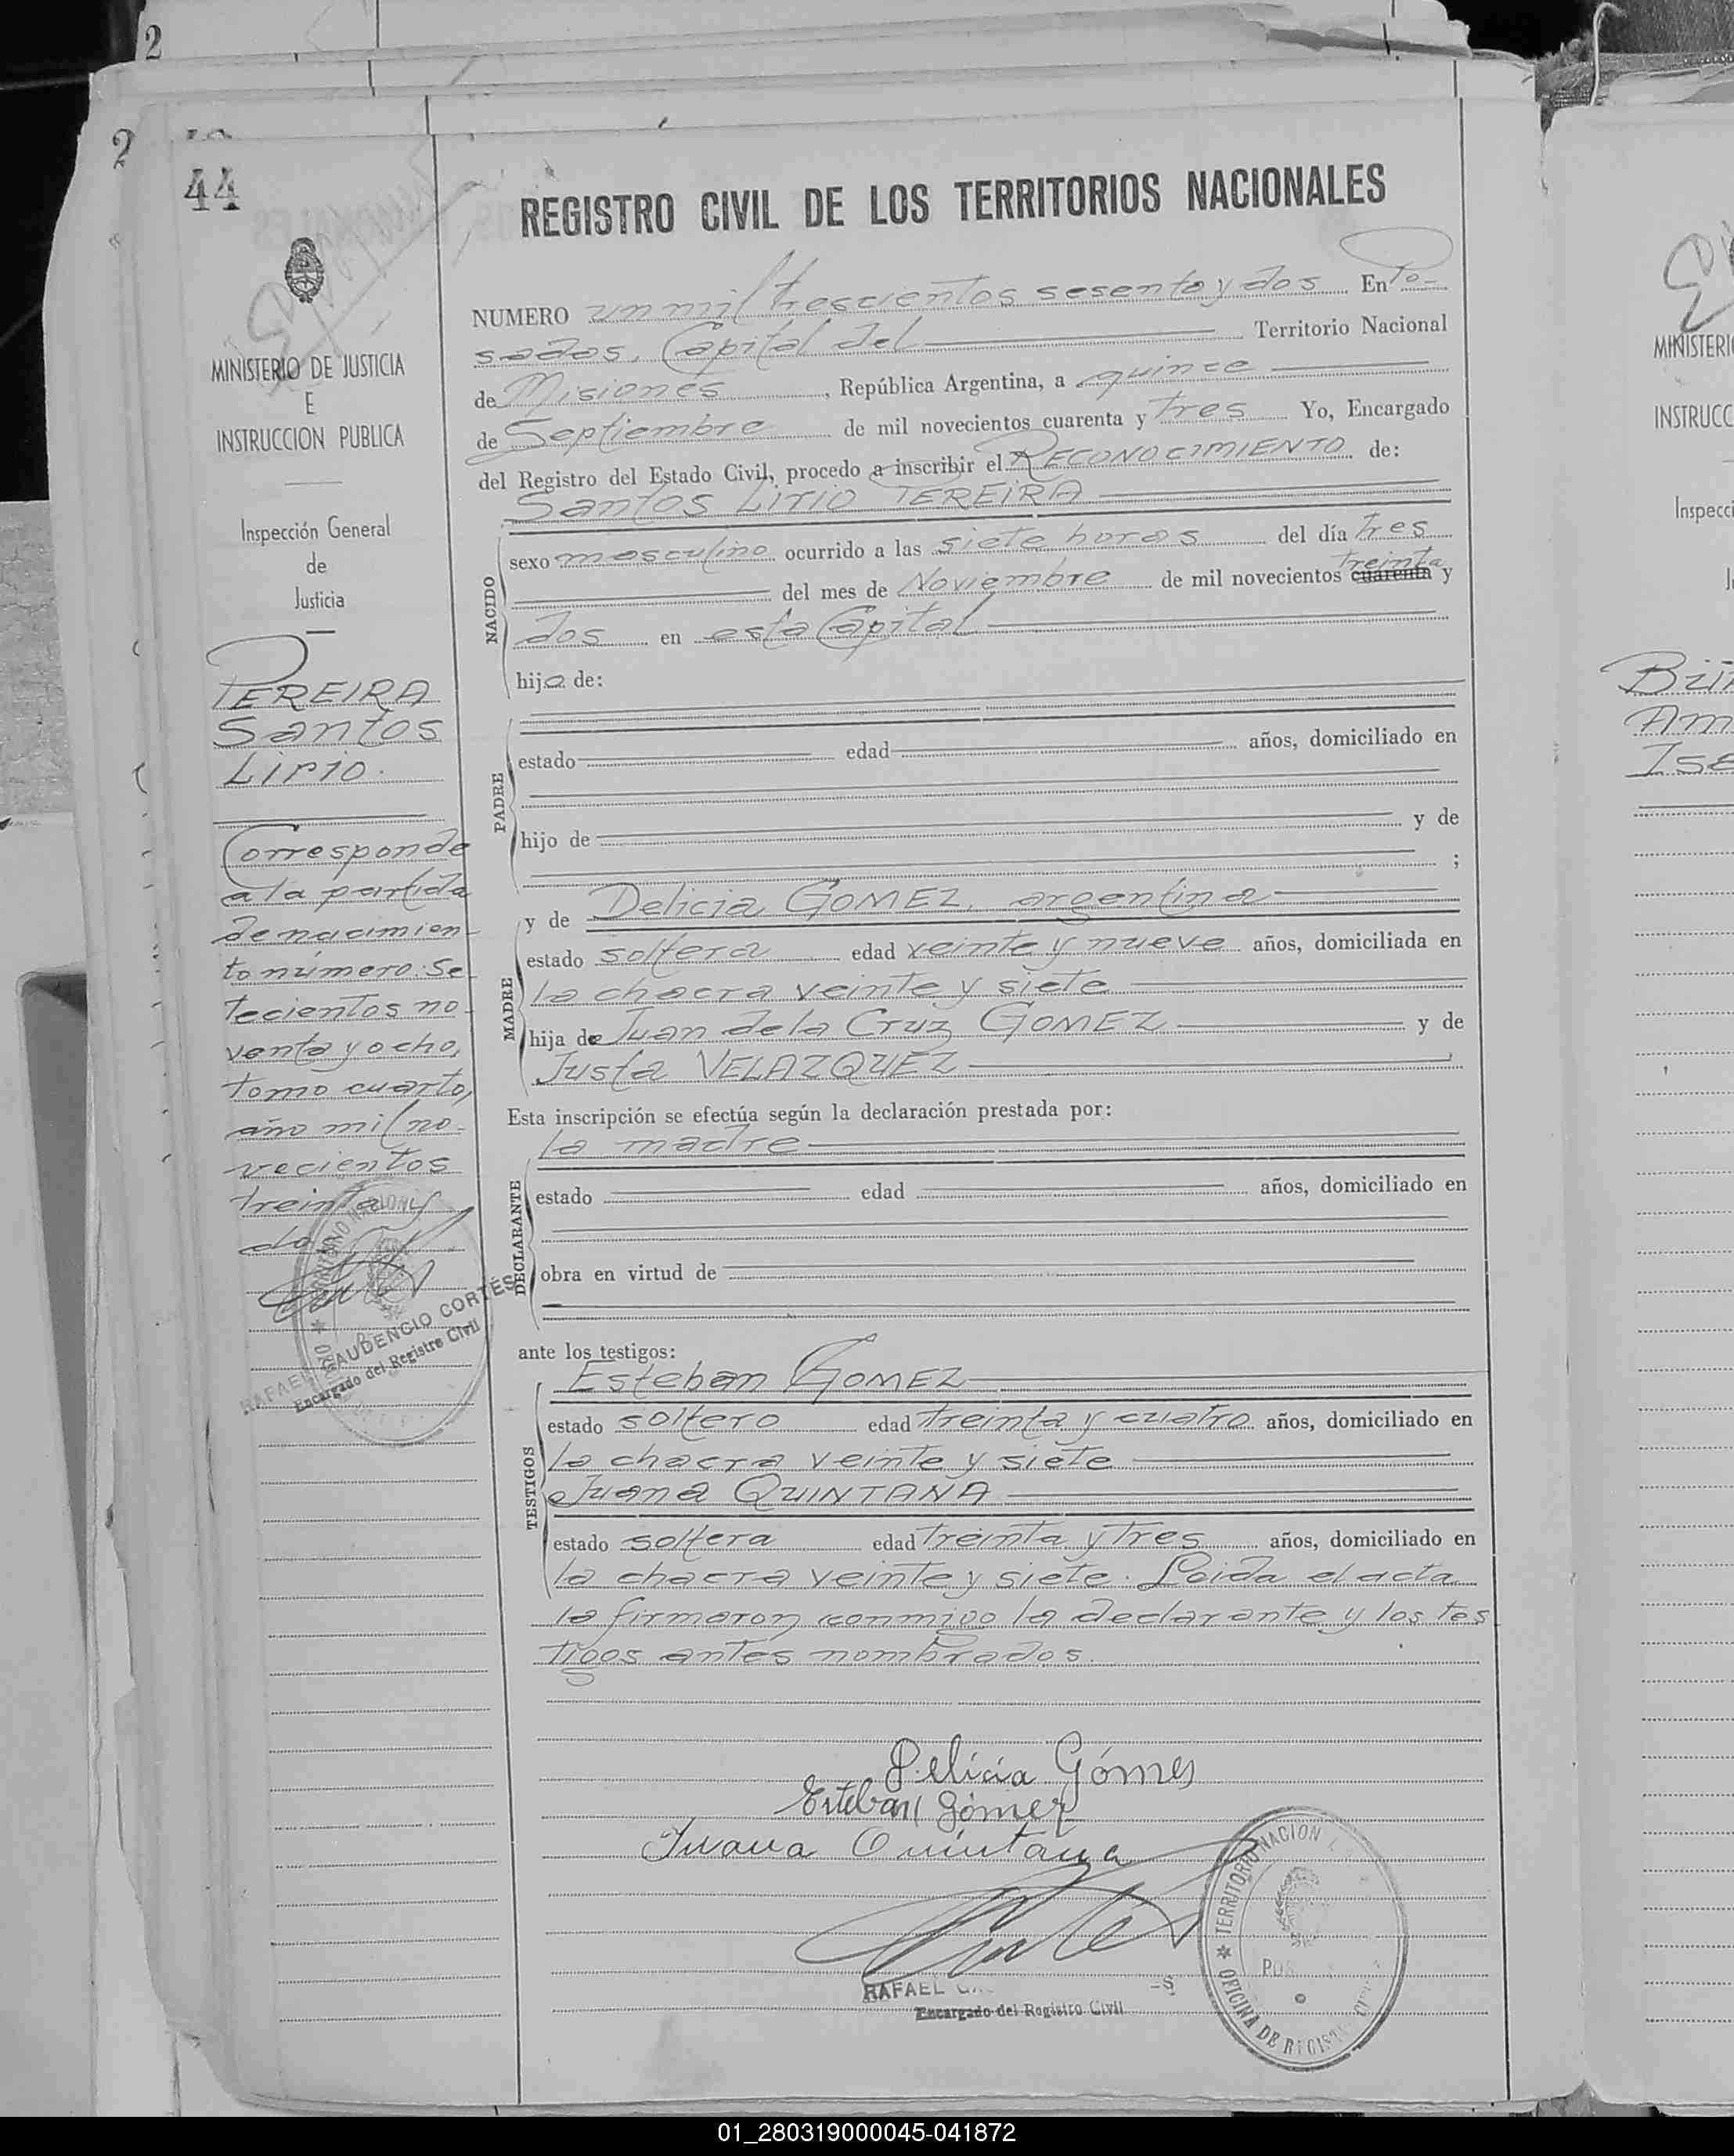 2
2
44
REGISTRO CIVIL DE LOS TERRITORIOS NACIONALES
MINISTERIO DE JUSTICIA
E
INSTRUCCION PUBLICA
Inspección General
de
Justicia
PEREIRA
Santos
Lirio.
Corresponde
a la partida
de nacimien-
to número: Se-
tecientos no-
venta y ocho,
tomo cuarto,
año mil no-
vecientos
treinta y
dos
RAFAEL GAUDENCIO CORTÉS
Encargado del Registro Civil
NUMERO un mil trescientos sesenta y dos En Po-
sadas, Capital del Territorio Nacional
de Misiones, República Argentina, a quince
de Septiembre de mil novecientos cuarenta y tres Yo, Encargado
del Registro del Estado Civil, procedo a inscribir el RECONOCIMIENTO de:
Santos Lirio PEREIRA
NACIDO
sexo masculino ocurrido a las siete horas del día tres
treinta
del mes de Noviembre de mil novecientos cuarenta y
dos en esta Capital
hijo de:
PADRE
estado edad años, domiciliado en
hijo de y de
;
MADRE
y de Delicia GOMEZ, argentina
estado soltera edad veinte y nueve años, domiciliada en
la chacra veinte y siete
hija de Juan de la Cruz GOMEZ y de
Justa VELAZQUEZ
Esta inscripción se efectúa según la declaración prestada por:
la madre
DECLARANTE
estado edad años, domiciliado en
obra en virtud de
ante los testigos:
TESTIGOS
Esteban GOMEZ
estado soltero edad treinta y cuatro años, domiciliado en
la chacra veinte y siete
Juana QUINTANA
estado soltera edad treinta y tres años, domiciliado en
la chacra veinte y siete. Leida el acta
la firmaron conmigo la declarante y los tes
tigos antes nombrados.
Delicia Gómes
Esteban Gómez
Juana Quintana
RAFAEL
Encargado del Registro Civil
TERRITORIO NACION
OFICINA DE REGIST
MINISTERI
INSTRUCC
Inspecci
Am
Ise
01_280319000045-041872